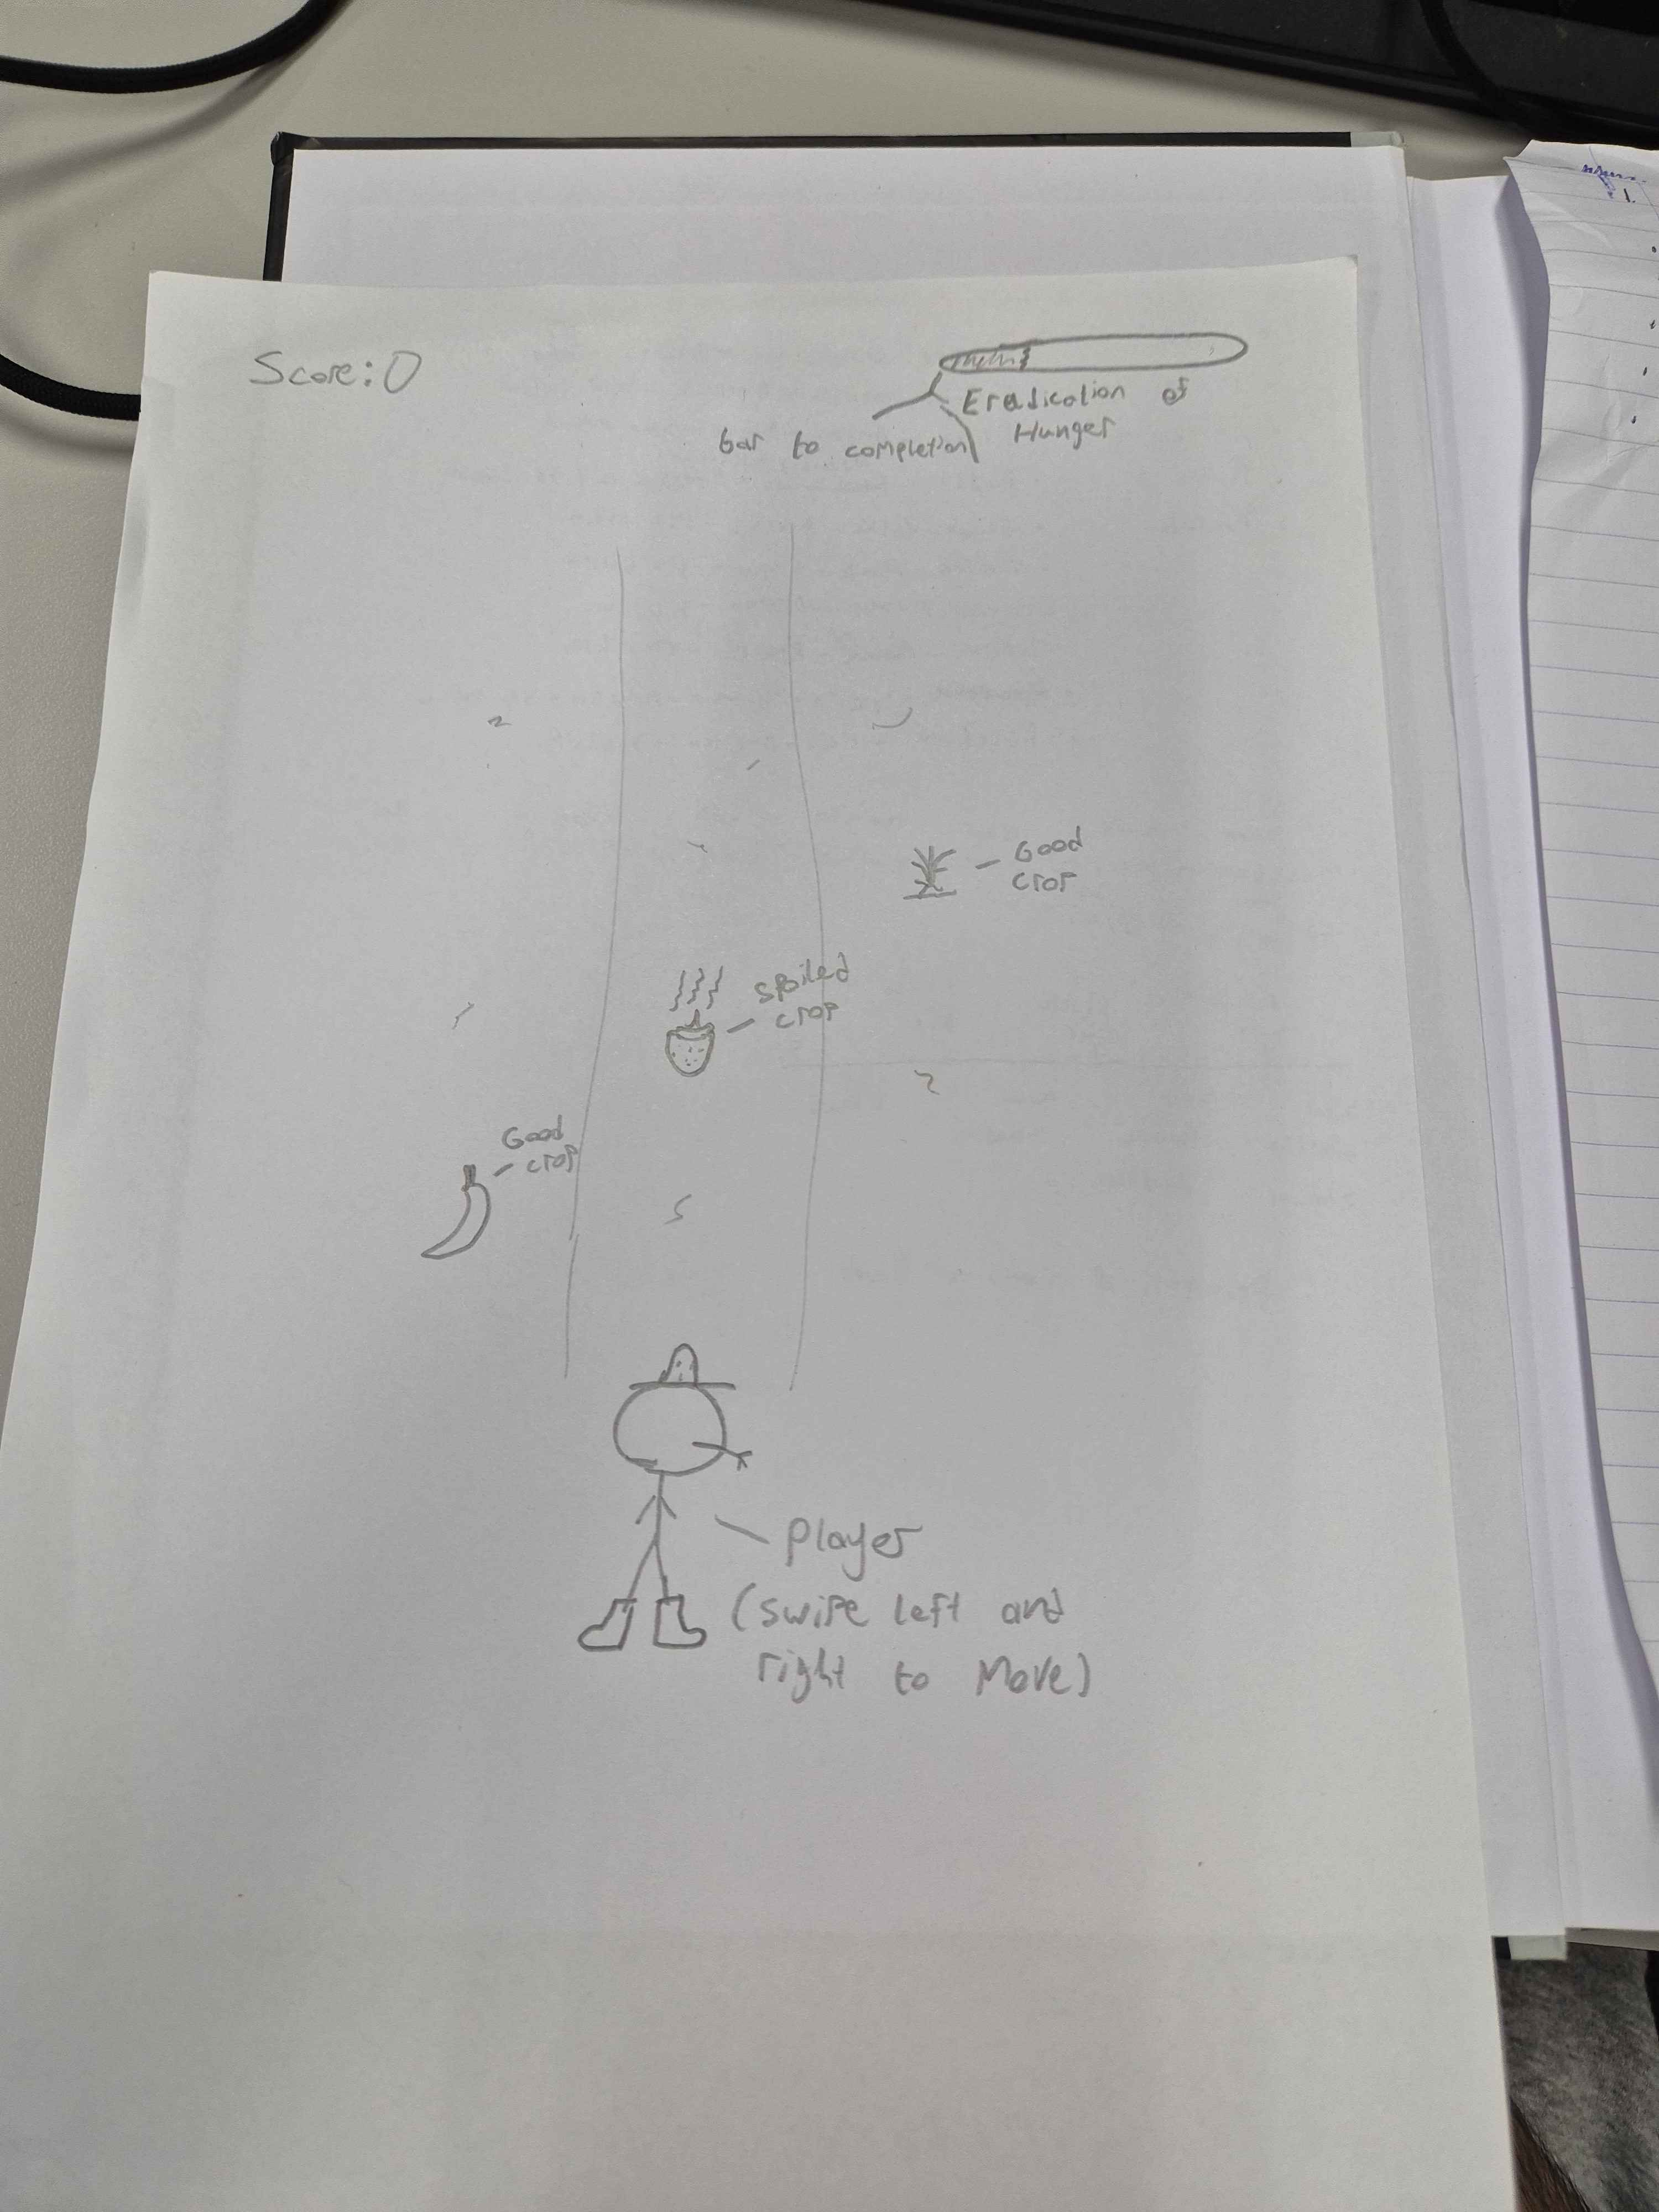 Score: 0
Eradication of
Hunger
bar to completion
Good
crop
Spoiled
crop
Good
crop
Player
(swipe left and
right to Move)